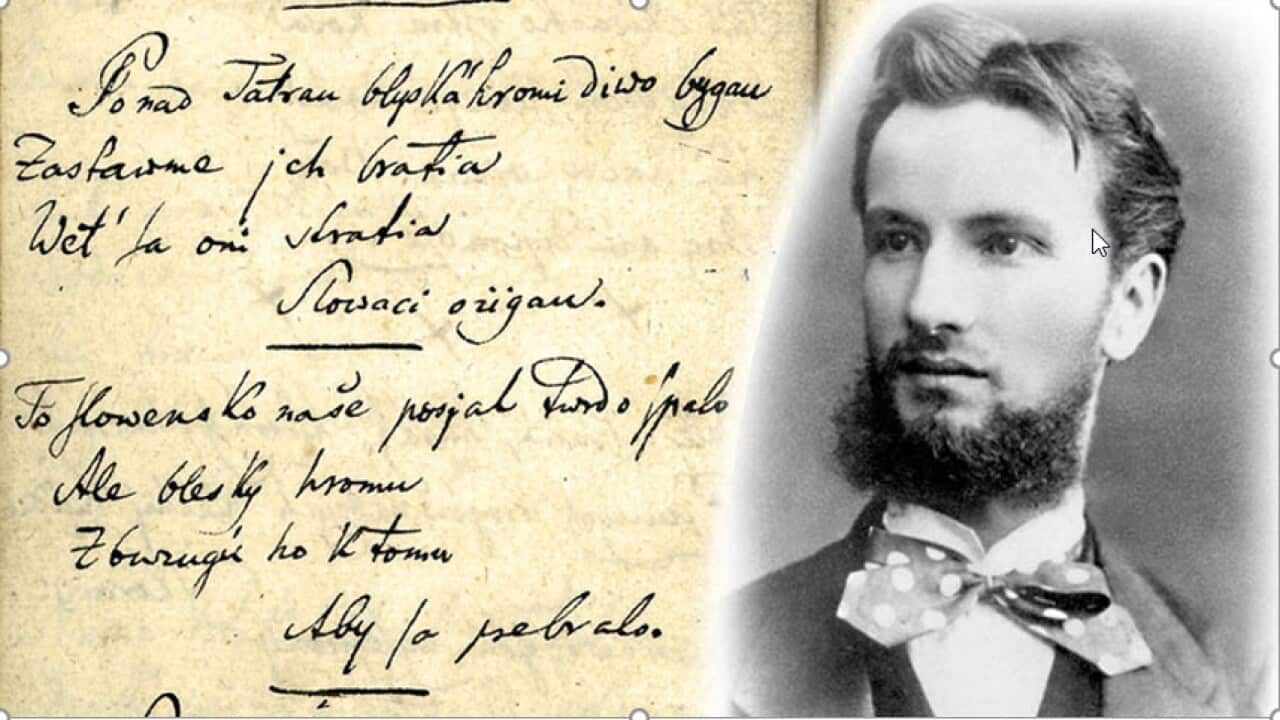 Ponad Tatrau blyská hromi diwo bygau
Zastawme jch bratia
Wet' sa oni stratia
Slowaci ožigau.
To slowensko naše posjal twrdo spalo
Ale blesky hromu
Zbuzugú ho k tomu
Aby sa prebralo.